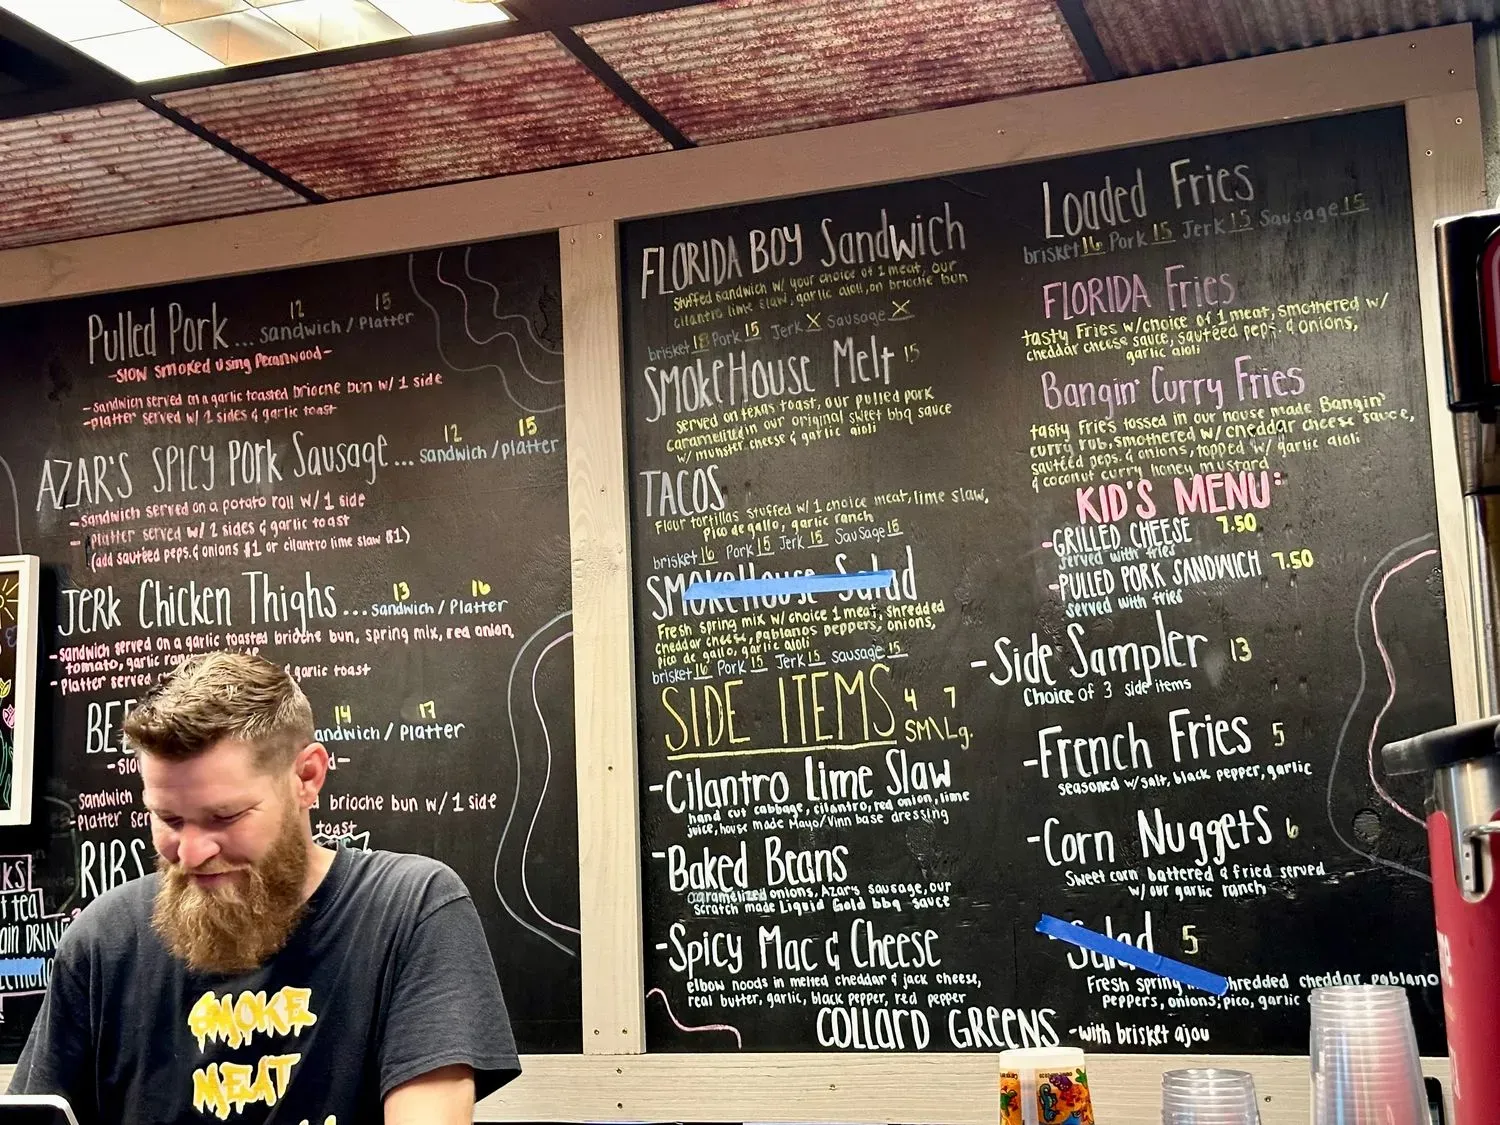 Pulled Pork... 12 15
sandwich / Platter
-Slow smoked using Pecanwood-
-sandwich served on a garlic toasted brioche bun w/ 1 side
-platter served w/ 2 sides & garlic toast
AZAR'S SPICY PORK Sausage... 12 15
sandwich / platter
-sandwich served on a potato roll w/ 1 side
-platter served w/ 2 sides & garlic toast
(add sautéed peps. & onions $1 or cilantro lime slaw $1)
JERK Chicken Thighs... 13 16
sandwich / Platter
-sandwich served on a garlic toasted brioche bun, spring mix, red onion,
tomato, garlic
-Platter served
& garlic toast
BEE
14 17
andwich / Platter
-Slo
sandwich
brioche bun w/ 1 side
-Platter se
toast
RIBS
KS
t tea
ain DRIN
FLORIDA BOY Sandwich
Stuffed sandwich w/ your choice of 1 meat, our
cilantro lime slaw, garlic aioli, on brioche bun
brisket 18 Pork 15 Jerk X Sausage X
SMOKEHOUSE Melt 15
served on texas toast, our pulled pork
caramelized in our original sweet bbq sauce
w/ munster cheese & garlic aioli
TACOS
Flour tortillas stuffed w/ 1 choice meat, lime slaw,
pico de gallo, garlic ranch
brisket 16 Pork 15 Jerk 15 Sausage 15
SMOKEHOUSE Salad
Fresh spring mix w/ choice 1 meat, shredded
cheddar cheese, pablanos peppers, onions,
pico de gallo, garlic aioli
brisket 16 Pork 15 Jerk 15 sausage 15
SIDE ITEMS 4 7
SM\Lg.
-Cilantro Lime Slaw
hand cut cabbage, cilantro, red onion, lime
juice, house made Mayo/Vinn base dressing
-Baked Beans
caramelized onions, Azar's sausage, our
scratch made Liquid Gold bbq sauce
-Spicy Mac & Cheese
elbow noods in melted cheddar & jack cheese,
real butter, garlic, black pepper, red pepper
COLLARD GREENS -with brisket ajou
Loaded Fries
brisket 16 Pork 15 Jerk 15 Sausage 15
FLORIDA Fries
tasty Fries w/choice of 1 meat, smothered w/
cheddar cheese sauce, sautéed peps. & onions,
garlic aioli
Bangin' Curry Fries
tasty Fries tossed in our house made Bangin'
curry rub, smothered w/ cheddar cheese sauce,
sautéed peps. & onions, topped w/ garlic aioli
& coconut curry honey mustard
KID'S MENU:
-GRILLED CHEESE 7.50
served with fries
-PULLED PORK SANDWICH 7.50
served with fries
-Side Sampler 13
Choice of 3 side items
-French Fries 5
seasoned w/salt, black pepper, garlic
-Corn Nuggets 6
Sweet corn battered & fried served
w/ our garlic ranch
-Salad 5
Fresh spring shredded cheddar, poblano
peppers, onions, pico, garlic
SMOKE
MEAT